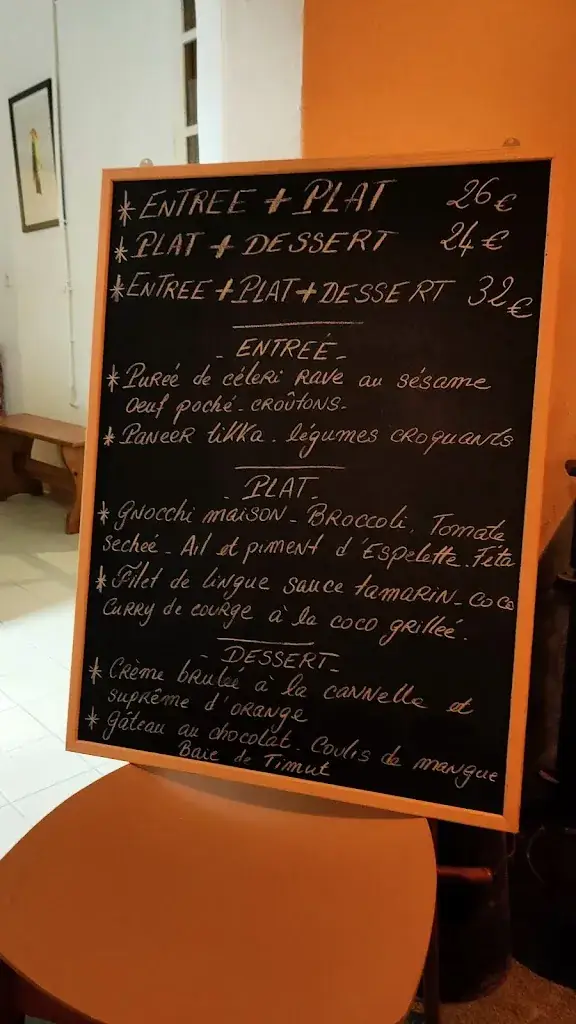 * ENTREE + PLAT 26€
* PLAT + DESSERT 24€
* ENTREE + PLAT + DESSERT 32€
- ENTREÉ -
* PUREÉ de céleri RAVE au sésame
Oeuf poché - CROÛTONS -
* PANEER tikka. légumes CROquants
- PLAT -
* Gnocchi maison - BROCCOLI. Tomate
Sechée - Ail et piment d'ESpelette. Féta
* Filet de lingue sauce tamarin - coco
CURRY de courge à la coco grilleé.
- DESSERT -
* Crème brulée à la cannelle et
suprême d'orange
* Gâteau au chocolat. Coulis de mangue
Baie de Timut